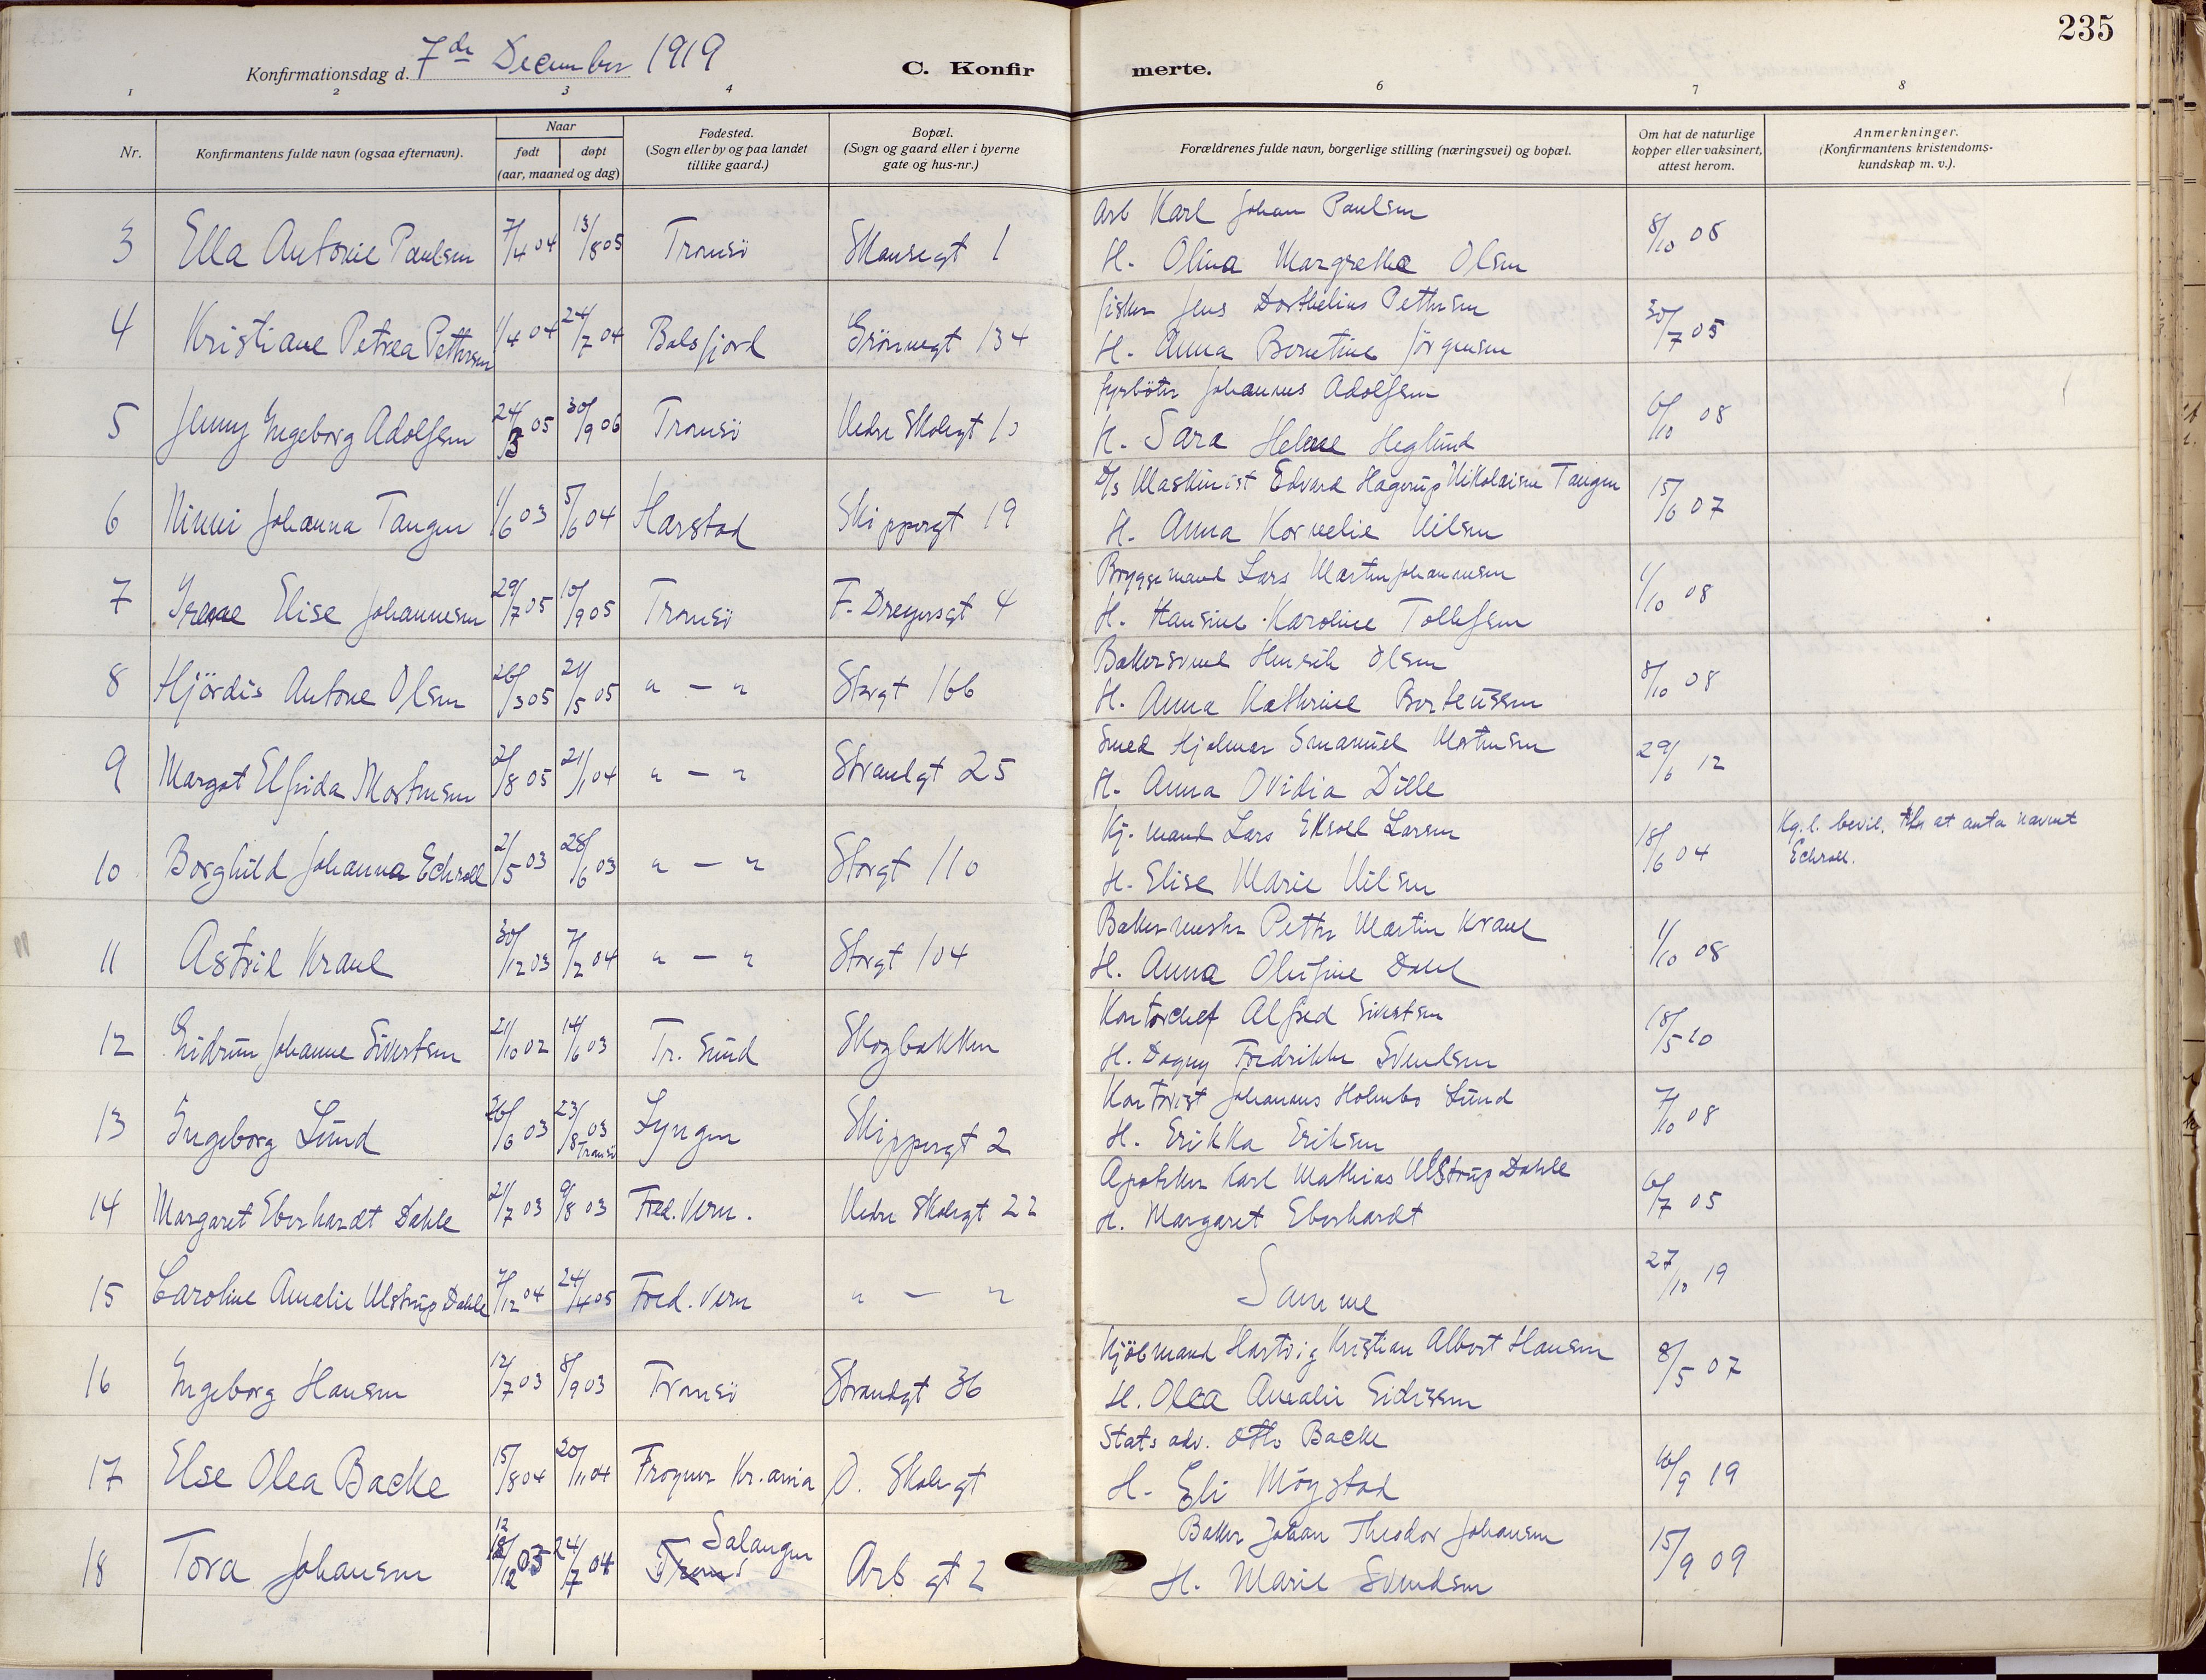 235
Konfirmationsdag d. 7de December 1919
C. Konfir merte.
1 2 3 4 6 7 8
Nr.
Konfirmantens fulde navn (ogsaa efternavn).
Naar
født døpt
(aar, maaned og dag)
Fødested.
(Sogn eller by og paa landet
tillike gaard.)
Bopæl.
(Sogn og gaard eller i byerne
gate og hus-nr.)
Forældrenes fulde navn, borgerlige stilling (næringsvei) og bopæl.
Om hat de naturlige
kopper eller vaksinert,
attest herom.
Anmerkninger.
(Konfirmantens kristendoms-
kundskap m. v.).
Arb Karl Johan Paulsen
3 Ella Antonie Paulsen 7/4 04 13/8 05 Tromsö Skansegt 1 H. Olina Margrethe Olsen 8/10 08
fisker Jens Dorthelius Pettersen
4 Kristiane Petrea Pettersen 1/4 04 24/7 04 Balsfjord Grönnegt 134 H. Anna Berntine Jörgensen 30/7 05
fyrböter Johannes Adolfsen
5 Jenny Ingeborg Adolfsen 24/3 05 30/9 06 Tromsö Nedre Skolegt 10 H. Sara Helene Heglund 6/10 08
D/s Maskinist Edvard Hagerup Nikolaisen Tangen
6 Ninni Johanna Tangen 1/6 03 5/6 04 Harstad Skippergt 19 H. Anna Kornelie Nilsen 15/6 07
Bryggemand Lars Martin Johannesen
7 Irene Elise Johannesen 29/7 05 10/9 05 Tromsö F. Dreyersgt 4 H. Hansine Karoline Tollefsen 1/10 08
Bakersvend Henrik Olsen
8 Hjördis Antone Olsen 26/3 05 21/5 05 " — " Storgt 166 H. Anna Kathrine Berteussen 8/10 08
Smed Hjalmar Emanuel Mortensen
9 Margot Elfrida Mortensen 2/8 05 21/1 04 " — " Strandgt 25 H. Anna Ovidia Dille 29/6 12
Kj. mand Lars Ekroll Larsen
10 Borghild Johanna Echroll 2/5 03 28/6 03 " — " Storgt 110 H. Elise Marie Nilsen 18/6 04 Kg. l. bevil. til at anta navnet
Echroll.
Bakermester Petter Martin Krane
11 Astrid Krane 30/12 03 7/2 04 " — " Storgt 104 H. Anna Olufine Dahl 1/10 08
Kontorchef Alfred Sivertsen
12 Gudrun Johanne Sivertsen 21/10 02 14/6 03 Tr. sund Skogbakken H. Dagny Fredrikke Svendsen 18/5 10
Kontorist Johannes Holmbo Lund
13 Ingeborg Lund 26/6 03 23/8 03 Tromsö Lyngen Skippergt 2 H. Erikka Eriksen 7/10 08
Apoteker Karl Mathias Ulstrup Dahle
14 Margaret Eberhardt Dahle 21/7 03 9/8 03 Fred. Vern. Nedre Skolegt 22 H. Margaret Eberhardt 6/7 05
15 Caroline Amalie Ulstrup Dahle 7/12 04 24/4 05 Fred. Vern " — " Samme 27/10 19
Kjöbmand Hartvig Kristian Albert Hansen
16 Ingeborg Hansen 12/7 03 8/9 03 Tromsö Strandgt 36 H. Olea Amalie Eidissen 8/5 07
Stats adv. Otto Backe
17 Else Olea Backe 15/8 04 20/11 04 Frogner Kr.ania Ö. Skolegt H. Eli Möystad 16/9 19
Salangen Baker Johan Theodor Johansen
18 Tora Johansen 12/12 03 24/7 04 Troms Arb gt 2 H. Marie Svendsen 15/9 09